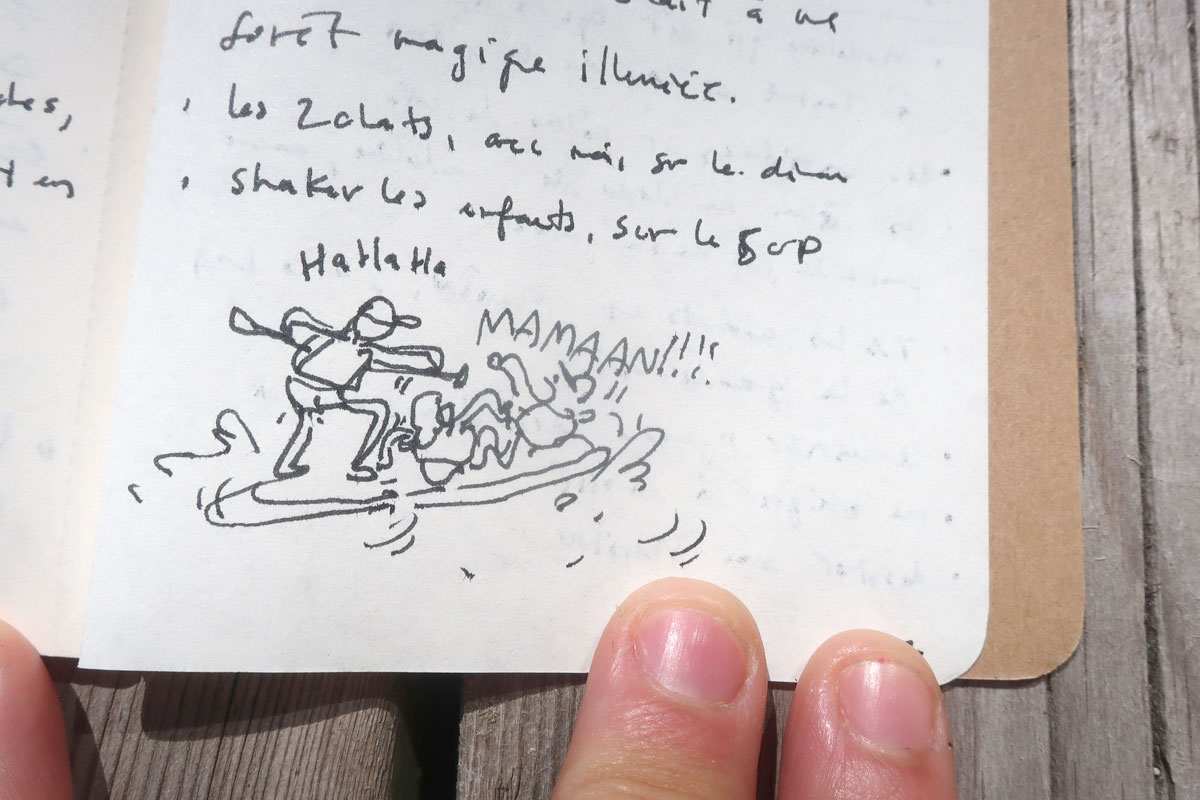 à une
forêt magique illuminée.
les 2 chats, avec moi, sur le divan
shaker les enfants, sur le SUP
HaHaHa
MAMAAN!!!!